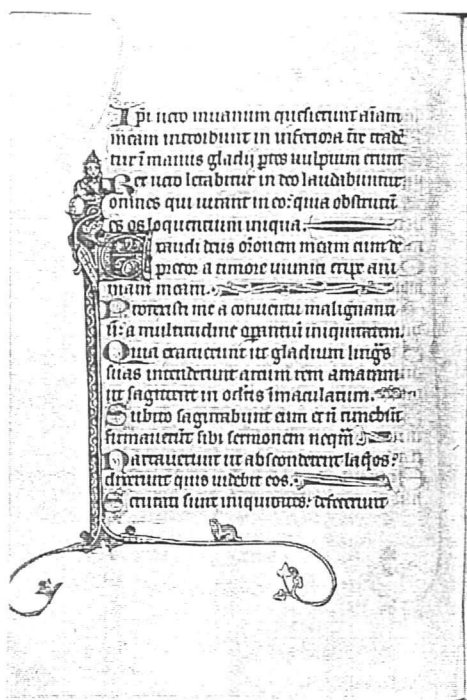 Ipi uero inuanum quesierunt aīam
meam introibunt in inferiora t̄re trade
tur ī manus gladij ptes uulpium erunt
Rex uero letabitur in deo laudabuntur
omnes qui iurant in eo: quia obstructū
est os loquentium iniqua.
Exaudi deus or̄onem meam cum de
precor a timore inimici eripe ani
mam meam.
Protexisti me a conuentu malignanti
ū: a multitudine operantiū iniquitatem.
Quia exacuerunt ut gladium linguas
suas intenderunt arcum rem amaram
ut sagittent in oc̄ltis īmaculatum.
Subito sagittabunt eum et nō timebūt
firmauerūt sibi sermonem neq̄m
Narrauerunt ut absconderent laq̄os:
dixerunt quis uidebit eos.
Scrutati sunt iniquitates: defecerunt